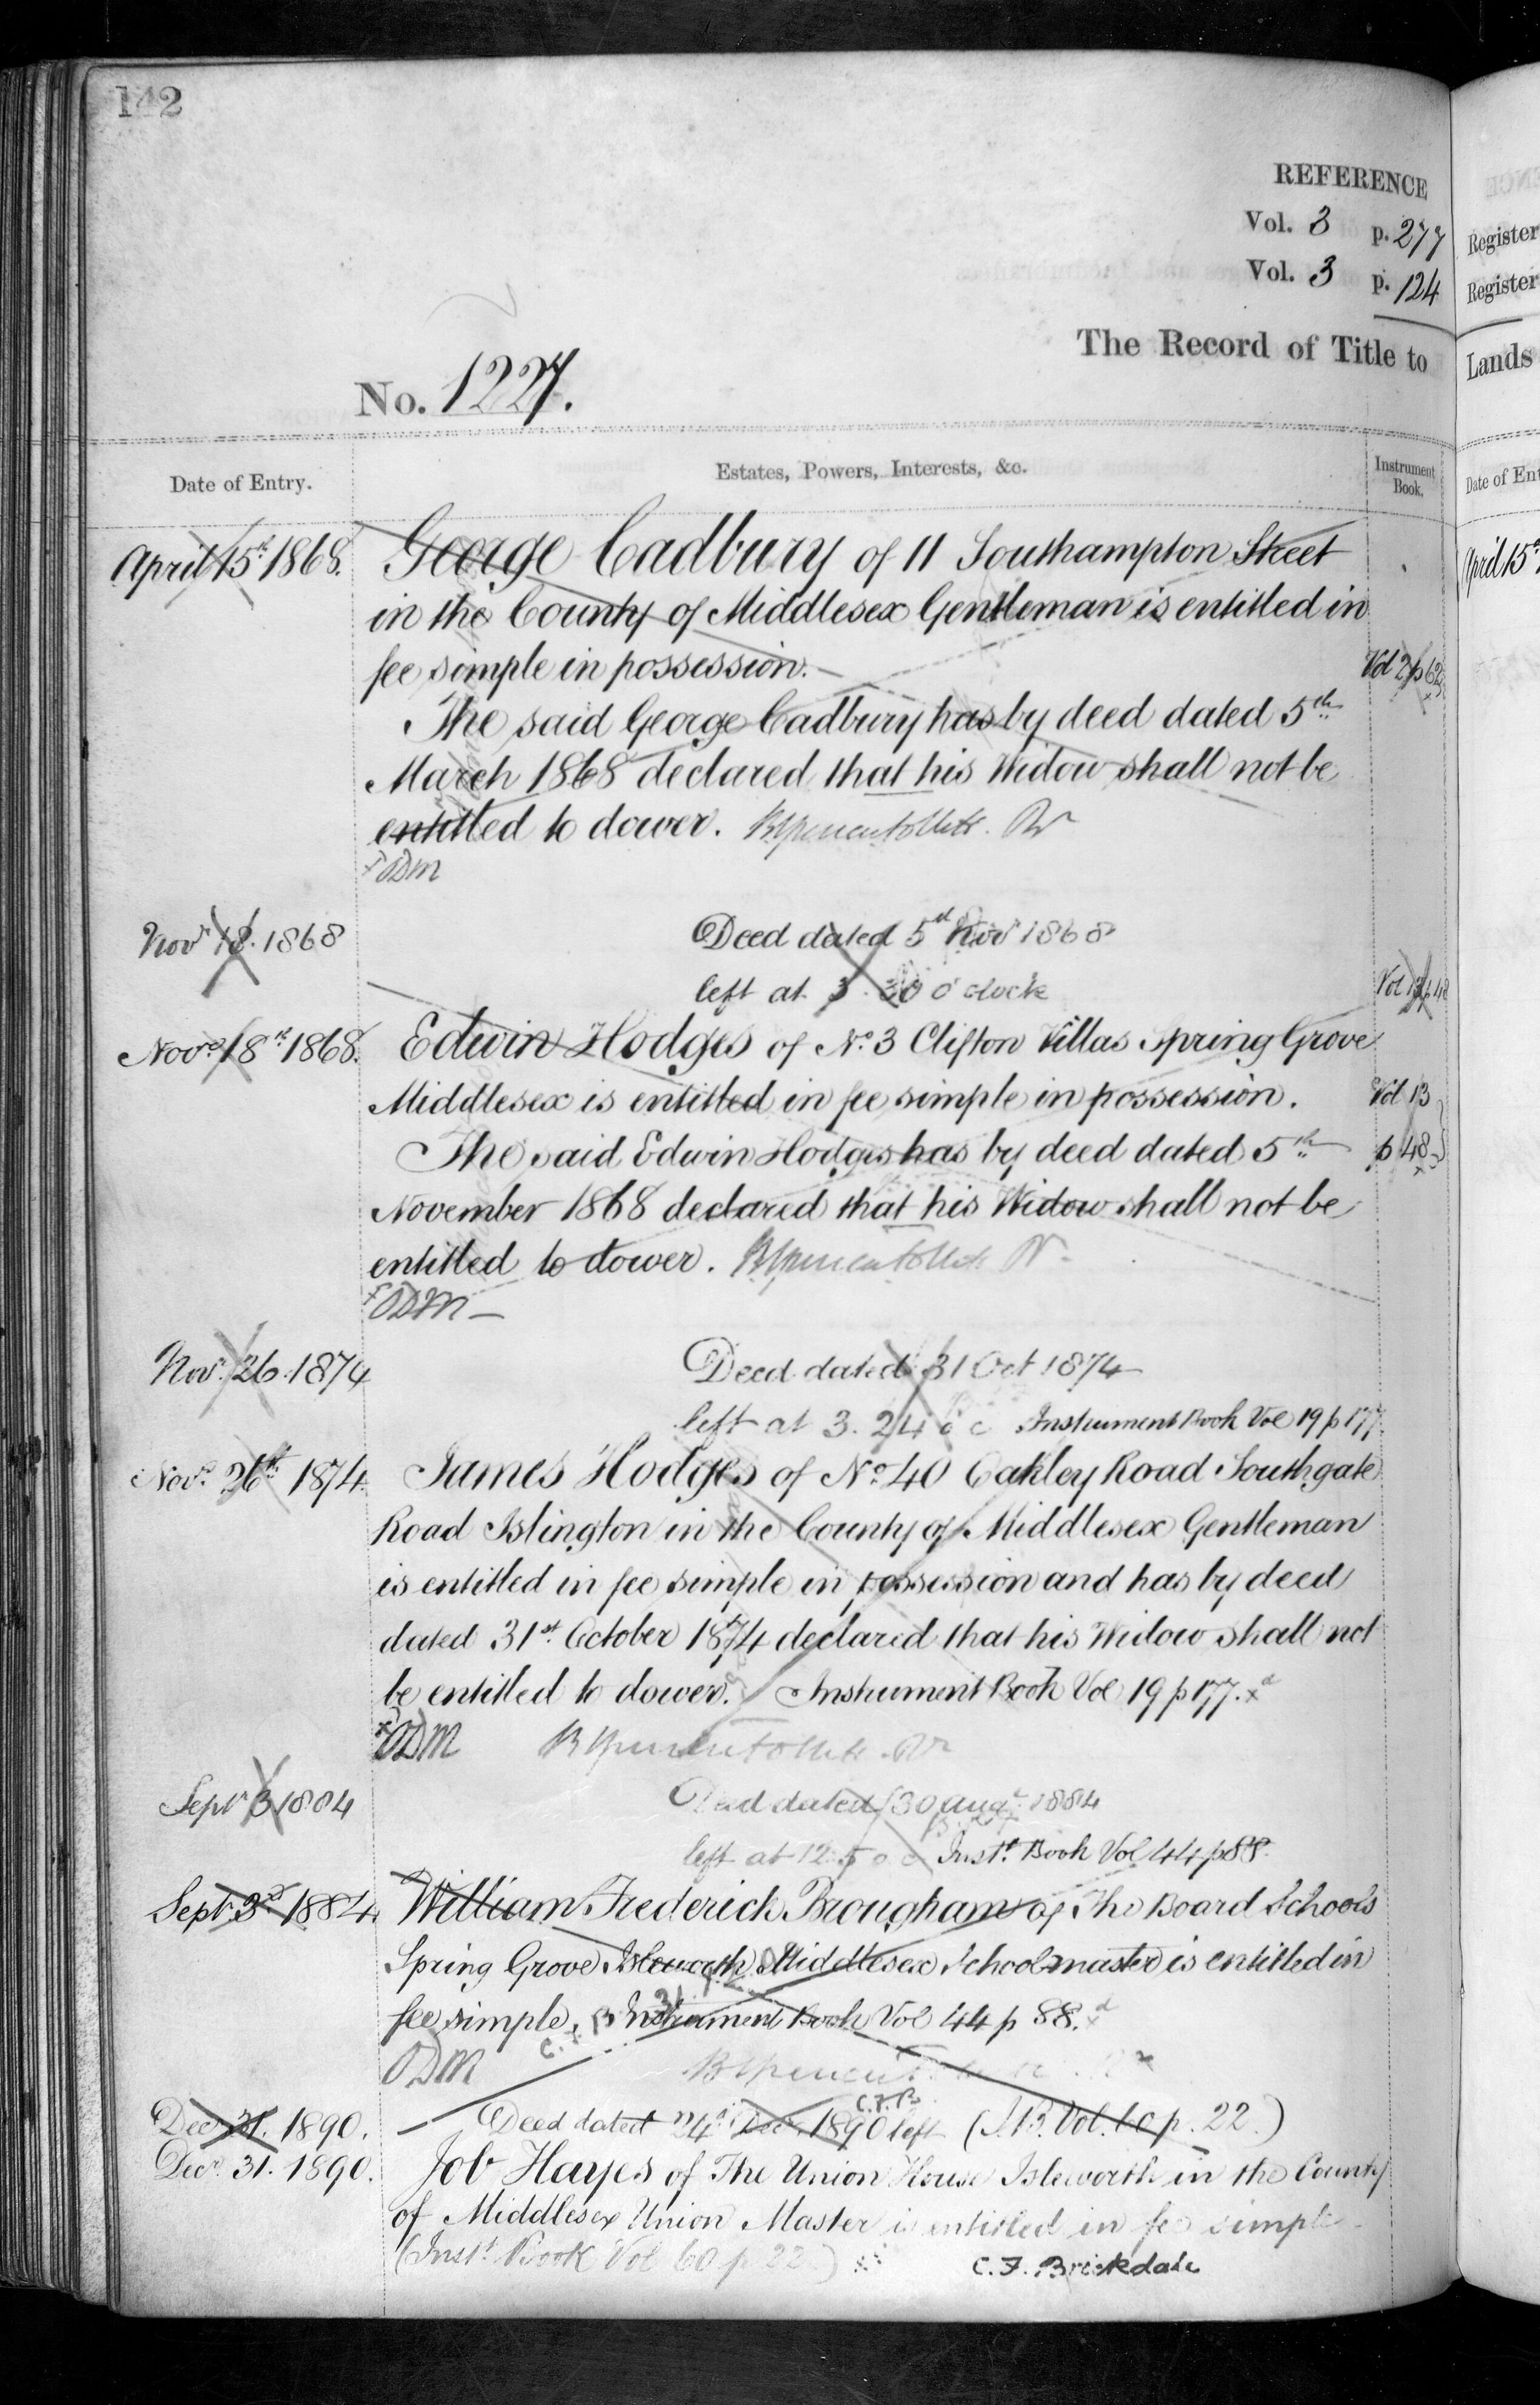 142
REFERENCE
Vol. 3 p. 277
Vol. 3 p. 124
The Record of Title to
No. 1227.
Date of Entry. Estates, Powers, Interests, &c. Instrument Book.
April 15th 1868. George Cadbury of 11 Southampton Street
in the County of Middlesex Gentleman is entitled in
fee simple in possession. Vol 2 p 62
The said George Cadbury has by deed dated 5th
March 1868 declared that his Widow shall not be
entitled to dower.
ODM
Novr 18. 1868 Deed dated 5th Novr 1868
left at 3.30 o'clock Vol 13 p 48
Novr 18th 1868. Edwin Hodges of No. 3 Clifton Villas Spring Grove
Middlesex is entitled in fee simple in possession. Vol 13
The said Edwin Hodges has by deed dated 5th p 48
November 1868 declared that his Widow shall not be
entitled to dower.
ODM
Novr 26. 1874 Deed dated 31 Oct 1874
left at 3.24 o c Instrument Book Vol 19 p 177.
Novr 26th 1874. James Hodges of No. 40 Oakley Road Southgate
Road Islington in the County of Middlesex Gentleman
is entitled in fee simple in possession and has by deed
dated 31st October 1874 declared that his Widow shall not
be entitled to dower. Instrument Book Vol 19 p 177.
ODM
Septr 3 1884 Deed dated 30 Augt 1884
left at 12.5 o c Inst. Book Vol 44 p 88.
Sept. 3rd 1884. William Frederick Brougham of The Board Schools
Spring Grove Isleworth Middlesex Schoolmaster is entitled in
fee simple. Instrument Book Vol 44 p 88.
ODM
C.F.B.
Decr 31. 1890. Deed dated 24th Dec. 1890 left (I.B. Vol. 60 p. 22.)
Decr 31. 1890. Job Hayes of The Union House Isleworth in the County
of Middlesex Union Master is entitled in fee simple
(Inst. Book Vol 60 p 22)
C. F. Brickdale
Register
Register
Lands
Date of Ent
April 15th